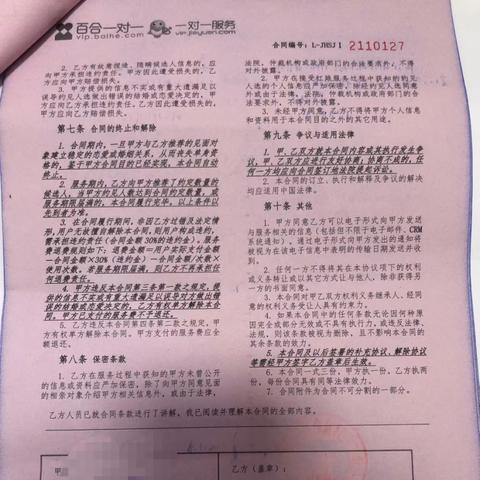 百合一对一
vip.baihe.com
一对一服务
vip.jiayuan.com
合同编号：L-JHSJ I 2110127
2. 乙方有故意捏造、隐瞒候选人信息的，应
向甲方承担违约责任。甲方因此遭受损失的，乙
方应向甲方赔偿损失。
3. 甲方提供的信息不实或有重大遗漏足以
误导约见人选做出错误的结婚或恋爱决定的，甲
方应向乙方承担违约责任。乙方因此遭受损失的，
甲方应向乙方赔偿损失。
第七条 合同的终止和解除
1. 合同期内，一旦甲方与乙方推荐的见面对
象建立稳定的恋爱或婚姻关系，从而丧失单身资
格的，鉴于甲方合同目的已经实现，本合同自动
终止。
2. 服务期内，乙方向甲方推荐了约定数量的
候选人，当甲方约见人数达到合同约定数量，或
服务期限届满的，本合同履行完毕，以上条件以
先到者为准。
3. 在合同履行期间，非因乙方过错及法定情
形，用户无故擅自解除本合同，则用户构成违约，
需承担违约责任（合同金额 30%的违约金）。服务
费退费规则如下：退费金额＝用户实际支付金额
－合同金额×30%（违约金）－合同金额/次数×
使用次数。若服务期限届满，则乙方不再承担任
何退费责任。
4. 甲方违反本合同第三条第一款之规定，提
供的信息不实或有重大遗漏足以误导对方做出错
误的结婚或恋爱决定的，乙方有权单方解除本合
同，甲方已支付的服务费不予退还。
5. 乙方违反本合同第四条第二款之规定，甲
方有权单方解除本合同，甲方支付的服务费应全
额退还。
第八条 保密条款
1. 乙方在服务过程中获知的甲方未曾公开
的信息或资料应严加保密，除了向甲方同意见面
的相亲对象介绍甲方相关信息外，或由于法律、
法院、仲裁机构或政府部门的合法要求外，不得
对外披露。
2. 甲方在接受红娘服务过程中获知的约见
人选的个人信息应严加保密，除经约见人选同意
外或由于法律、法院、仲裁机构或政府部门的合
法要求外，不得对外披露。
3. 未经甲方同意，乙方不得将甲方个人信息
和资料用于本合同目的之外的其它用途。
第九条 争议与适用法律
1. 甲、乙双方就本合同内容或其执行发生争
议，甲、乙双方应进行友好协商；协商不成的，任
何一方均应向合同签订地法院提起诉讼。
2. 本合同的订立、执行和解释及争议的解决
均应适用中国法律。
第十条 其他
1. 甲方同意乙方可以电子形式向甲方发送
与服务相关的信息（包括但不限于电子邮件、CRM
系统通知）。通过电子形式向甲方发出的通知将
被视为在该电子信息中表明的传输日期发送并收
到。
2. 任何一方不得将其在本协议项下的权利
或义务转让或以其它方式让与他人，除非获得另
一方的书面同意。
3. 本合同对甲乙双方权利义务继承人、经同
意的权利义务受让人具有约束力。
4. 如果本合同中的任何条款无论因何种原
因完全或部分无效或不具有执行力，或违反法律、
法规，则该条款被视为删除，且不影响本合同的
其余条款的效力。
5. 本合同及以后签署的补充协议、解除协议
等需经甲方签字乙方盖章后生效。
6. 本合同一式三份，甲方执一份，乙方执两
份，每份合同具有同等法律效力。
7. 合同附件为合同不可分割的一部分。
乙方人员已就合同条款进行了讲解，我已阅读并理解本合同的全部内容。
甲
乙方（盖章）：